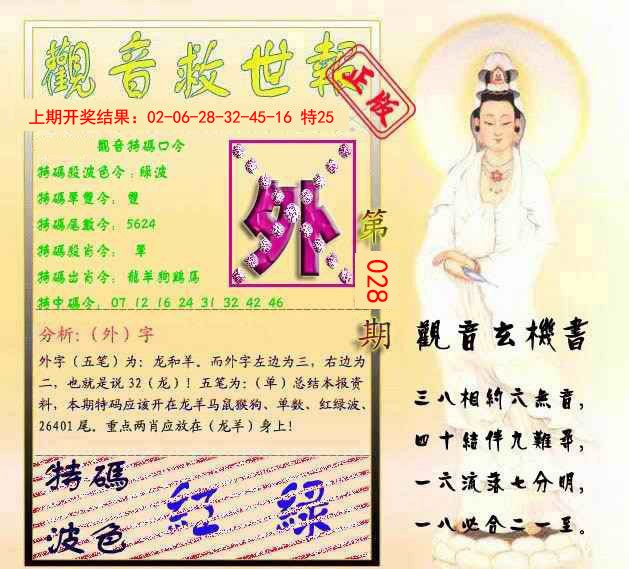 觀音救世報
正版
上期开奖结果：02-06-28-32-45-16 特25
觀音特碼口令
特碼段波色令：綠波
特碼單雙令： 雙
特碼尾數令： 5624
特碼段肖令： 單
特碼出肖令： 龍羊狗鷄馬
特中碼令： 07 12 16 24 31 32 42 46
外
第
028
期
分析：（外）字
外字（五笔）为：龙和羊。而外字左边为三，右边为
二，也就是说 32（龙）！五笔为：（单）总结本报资
料，本期特码应该开在龙羊马鼠猴狗、单数、红绿波、
26401 尾。重点两肖应放在（龙羊）身上！
特碼
波色
紅 綠
觀音玄機書
三八相約六無音，
四十結伴九難尋，
一六流落七分明，
一八必合二一至。